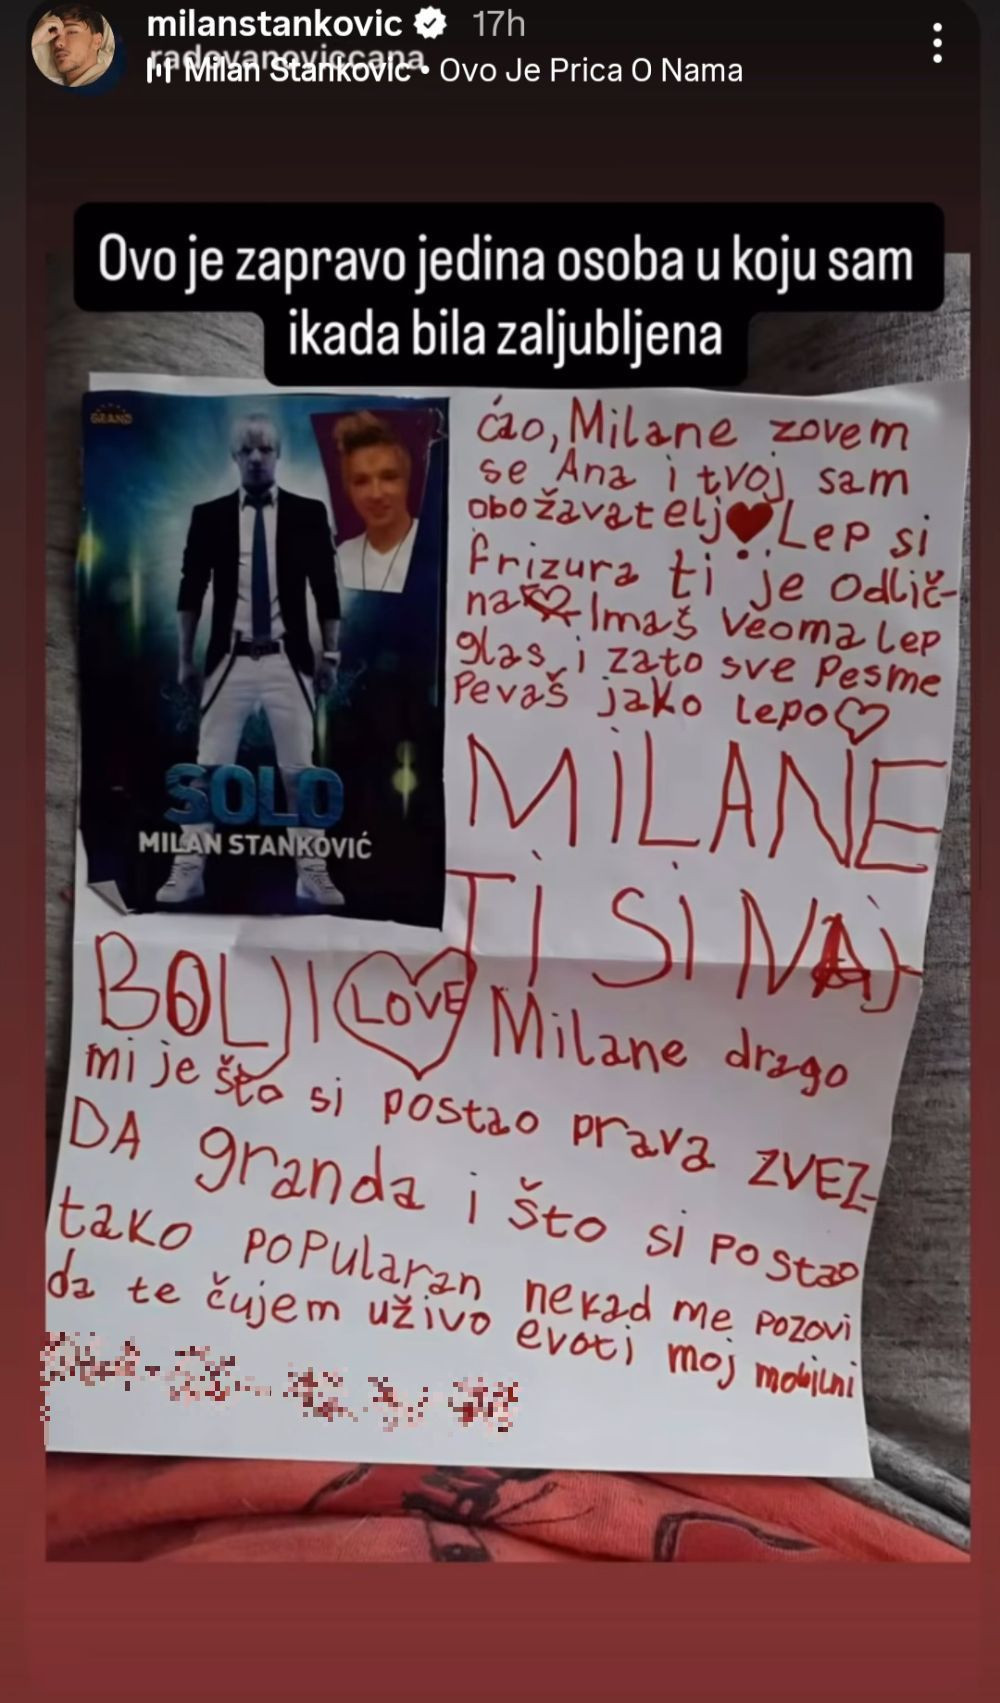 milanstankovic 17h
radovanoviccana
Milan Stanković • Ovo Je Prica O Nama
Ovo je zapravo jedina osoba u koju sam
ikada bila zaljubljena
GRAND
SOLO
MILAN STANKOVIĆ
ćao, Milane zovem
se Ana i tvoj sam
obožavatelj Lep si
frizura ti je odlič-
na Imaš veoma lep
glas, i zato sve Pesme
Pevaš jako lepo
MILANE
TI SI NAJ
BOLJI LOVE Milane drago
mi je što si postao prava ZVEZ-
DA granda i što si postao
tako poPularan nekad me pozovi
da te čujem uživo evoti moj mobilni